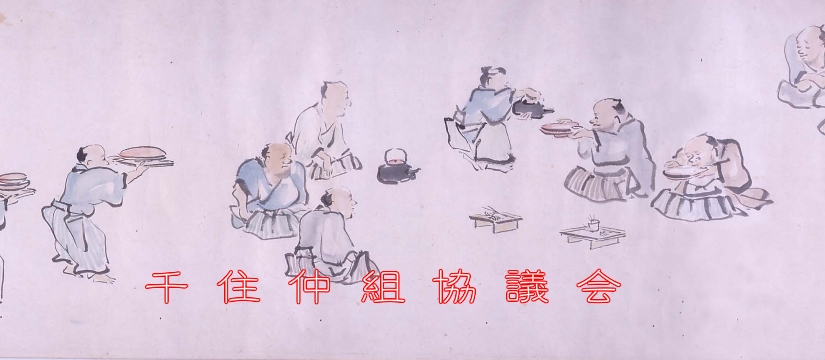 千住仲組協議会